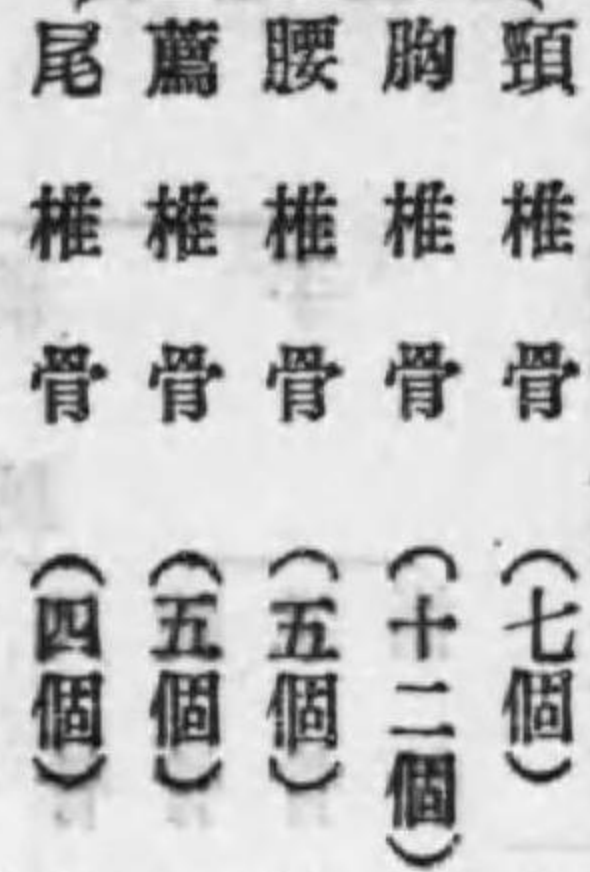 頸椎骨(七個)
胸椎骨(十二個)
腰椎骨(五個)
薦椎骨(五個)
尾椎骨(四個)